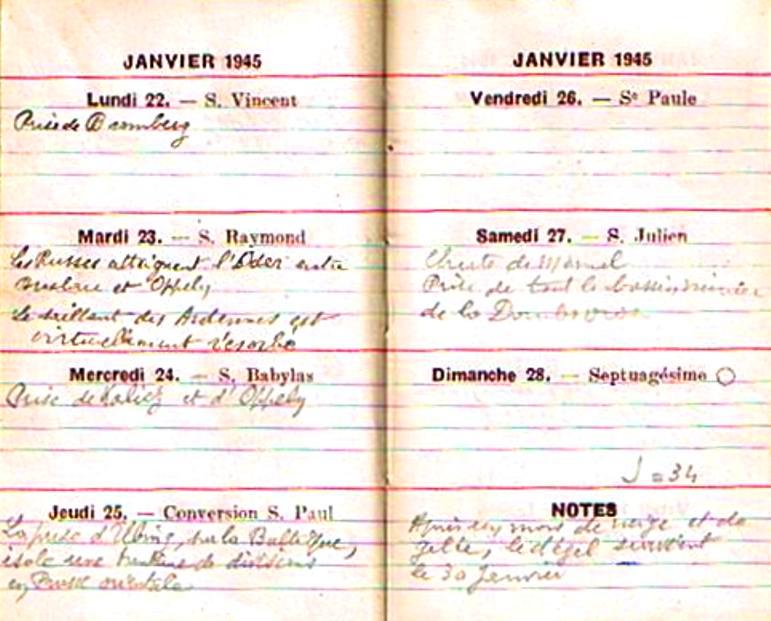 JANVIER 1945
Lundi 22. — S. Vincent
Prise de Bromberg
Mardi 23. — S. Raymond
Les Russes atteignent l'Oder entre
et Oppeln
Le saillant des Ardennes est
virtuellement résorbé
Mercredi 24. — S. Babylas
Prise de et d'Oppeln
Jeudi 25. — Conversion S. Paul
La prise d'Elbing, sur la Baltique,
isole une trentaine de divisions
en Prusse orientale
JANVIER 1945
Vendredi 26. — Sᵉ Paule
Samedi 27. — S. Julien
Chute de Memel
Prise de tout le bassin minier
de la Dombrowa
Dimanche 28. — Septuagésime
J = 34
NOTES
Après mois de neige et de
gelée, le dégel survient
le 30 Janvier